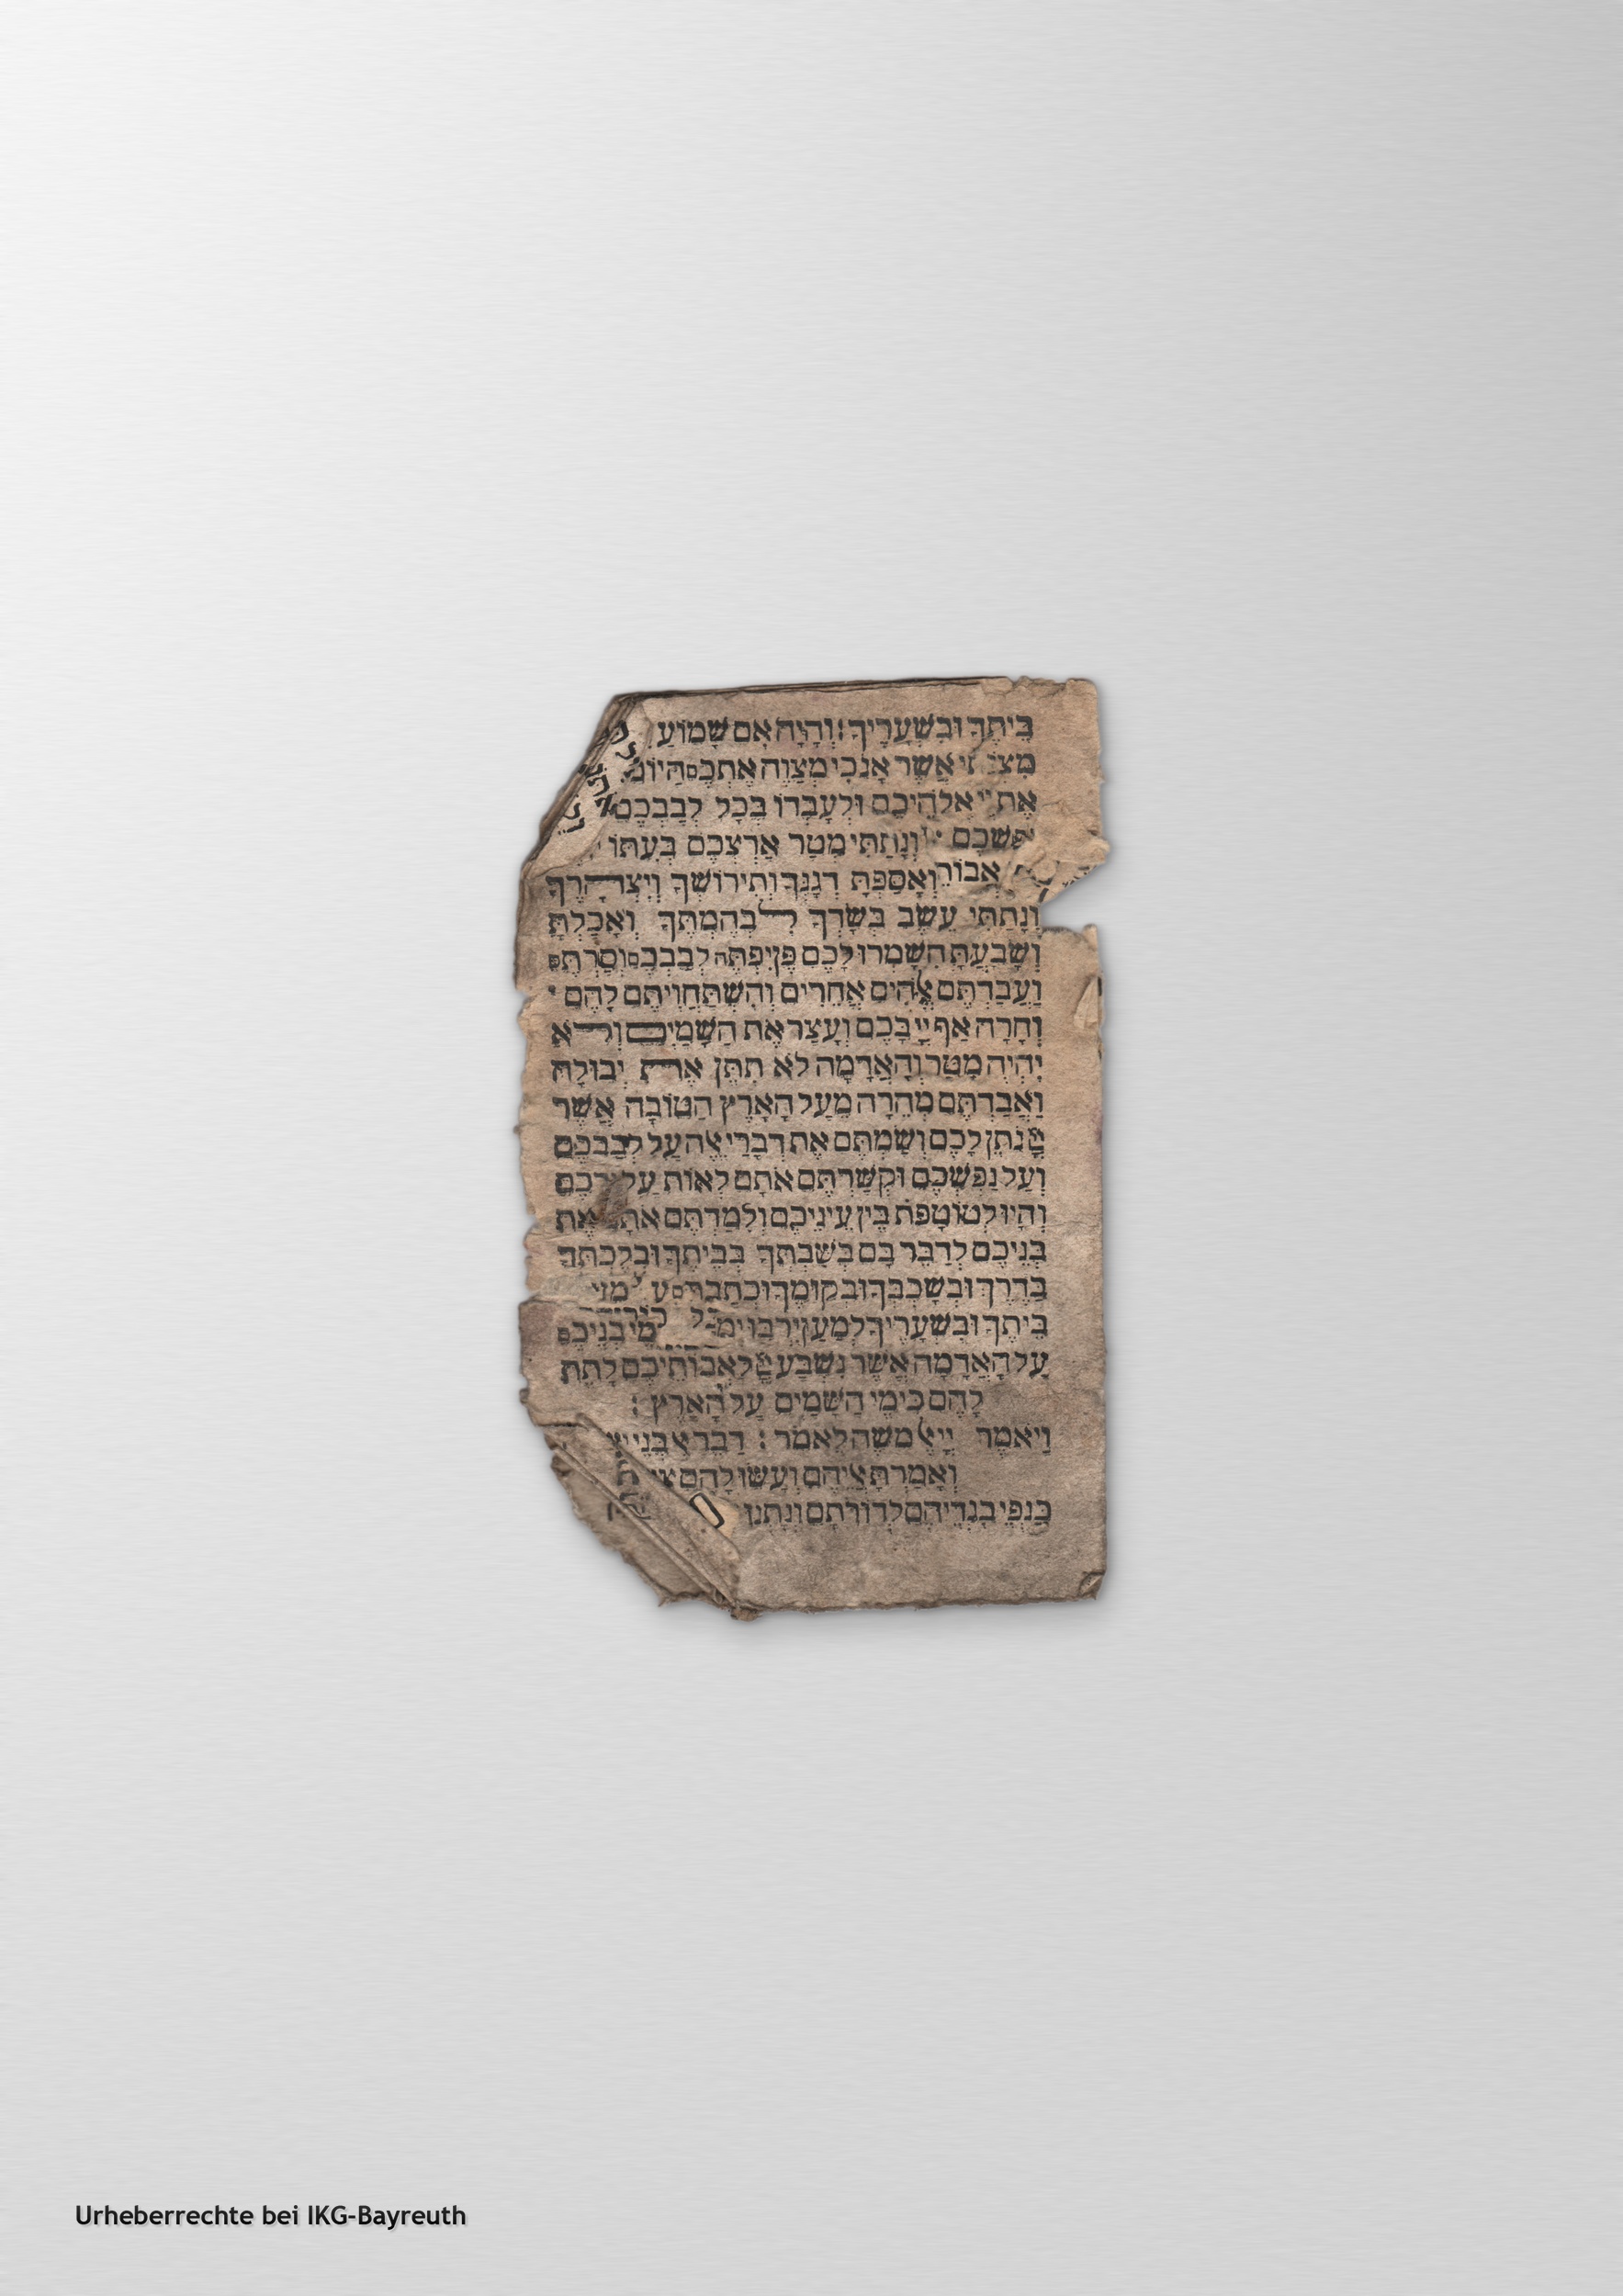 בֵּיתֶךָ וּבִשְׁעָרֶיךָ׃ וְהָיָה אִם שָׁמוֹעַ
אֲשֶׁר אָנֹכִי מְצַוֶּה אֶתְכֶם הַיּוֹם
אֶת יי אֱלֹהֵיכֶם וּלְעָבְדוֹ בְּכָל לְבַבְכֶם
וְנָתַתִּי מְטַר אַרְצְכֶם בְּעִתּוֹ
וְאָסַפְתָּ דְגָנֶךָ וְתִירוֹשְׁךָ וְיִצְהָרֶךָ
וְנָתַתִּי עֵשֶׂב בְּשָׂדְךָ לִבְהֶמְתֶּךָ וְאָכַלְתָּ
וְשָׂבָעְתָּ הִשָּׁמְרוּ לָכֶם פֶּן יִפְתֶּה לְבַבְכֶם וְסַרְתֶּם
וַעֲבַדְתֶּם אֱלֹהִים אֲחֵרִים וְהִשְׁתַּחֲוִיתֶם לָהֶם
וְחָרָה אַף יְיָ בָּכֶם וְעָצַר אֶת הַשָּׁמַיִם וְלֹא
יִהְיֶה מָטָר וְהָאֲדָמָה לֹא תִתֵּן אֶת יְבוּלָהּ
וַאֲבַדְתֶּם מְהֵרָה מֵעַל הָאָרֶץ הַטּוֹבָה אֲשֶׁר
נֹתֵן לָכֶם וְשַׂמְתֶּם אֶת דְּבָרַי אֵלֶּה עַל לְבַבְכֶם
וְעַל נַפְשְׁכֶם וּקְשַׁרְתֶּם אֹתָם לְאוֹת עַל יֶדְכֶם
וְהָיוּ לְטוֹטָפֹת בֵּין עֵינֵיכֶם וְלִמַּדְתֶּם אֹתָם אֶת
בְּנֵיכֶם לְדַבֵּר בָּם בְּשִׁבְתְּךָ בְּבֵיתֶךָ וּבְלֶכְתְּךָ
בַדֶּרֶךְ וּבְשָׁכְבְּךָ וּבְקוּמֶךָ וּכְתַבְתָּם
בֵּיתֶךָ וּבִשְׁעָרֶיךָ לְמַעַן יִרְבּוּ בְנֵיכֶם
עַל הָאֲדָמָה אֲשֶׁר נִשְׁבַּע לַאֲבוֹתֵיכֶם לָתֵת
לָהֶם כִּימֵי הַשָּׁמַיִם עַל הָאָרֶץ׃
וַיֹּאמֶר יְיָ אֶל מֹשֶׁה לֵּאמֹר׃ דַּבֵּר אֶל בְּנֵי
וְאָמַרְתָּ אֲלֵיהֶם וְעָשׂוּ לָהֶם
כַּנְפֵי בִגְדֵיהֶם לְדוֹרֹתָם וְנָתְנוּ
Urheberrechte bei IKG-Bayreuth